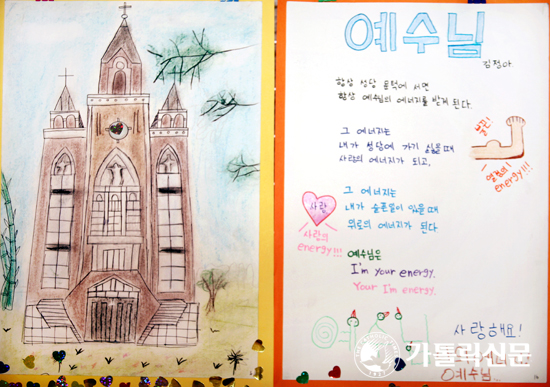 예수님
김정아.
항상 성당 문턱에 서면
항상 예수님의 에너지를 받게 된다.
그 에너지는
내가 성당에 가기 싫을 때
사랑의 에너지가 되고,
불끈!
열정의!
energy!!!
그 에너지는
내가 슬픈일이 있을 때
위로의 에너지가 된다
사랑
사랑의
energy!!!
예수님은
I'm your energy.
Your I'm energy.
사랑해요!
예수님
가톨릭신문